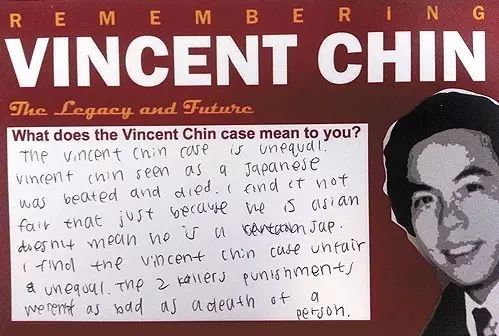 REMEMBERING
VINCENT CHIN
The Legacy and Future
What does the Vincent Chin case mean to you?
The vincent chin case is unequal.
Vincent chin seen as a Japanese
was beated and died. I find it not
fair that just because he is asian
doesnt mean he is a Jap.
I find the vincent chin case unfair
& unequal. The 2 killers punishments
werent as bad as a death of a
person.